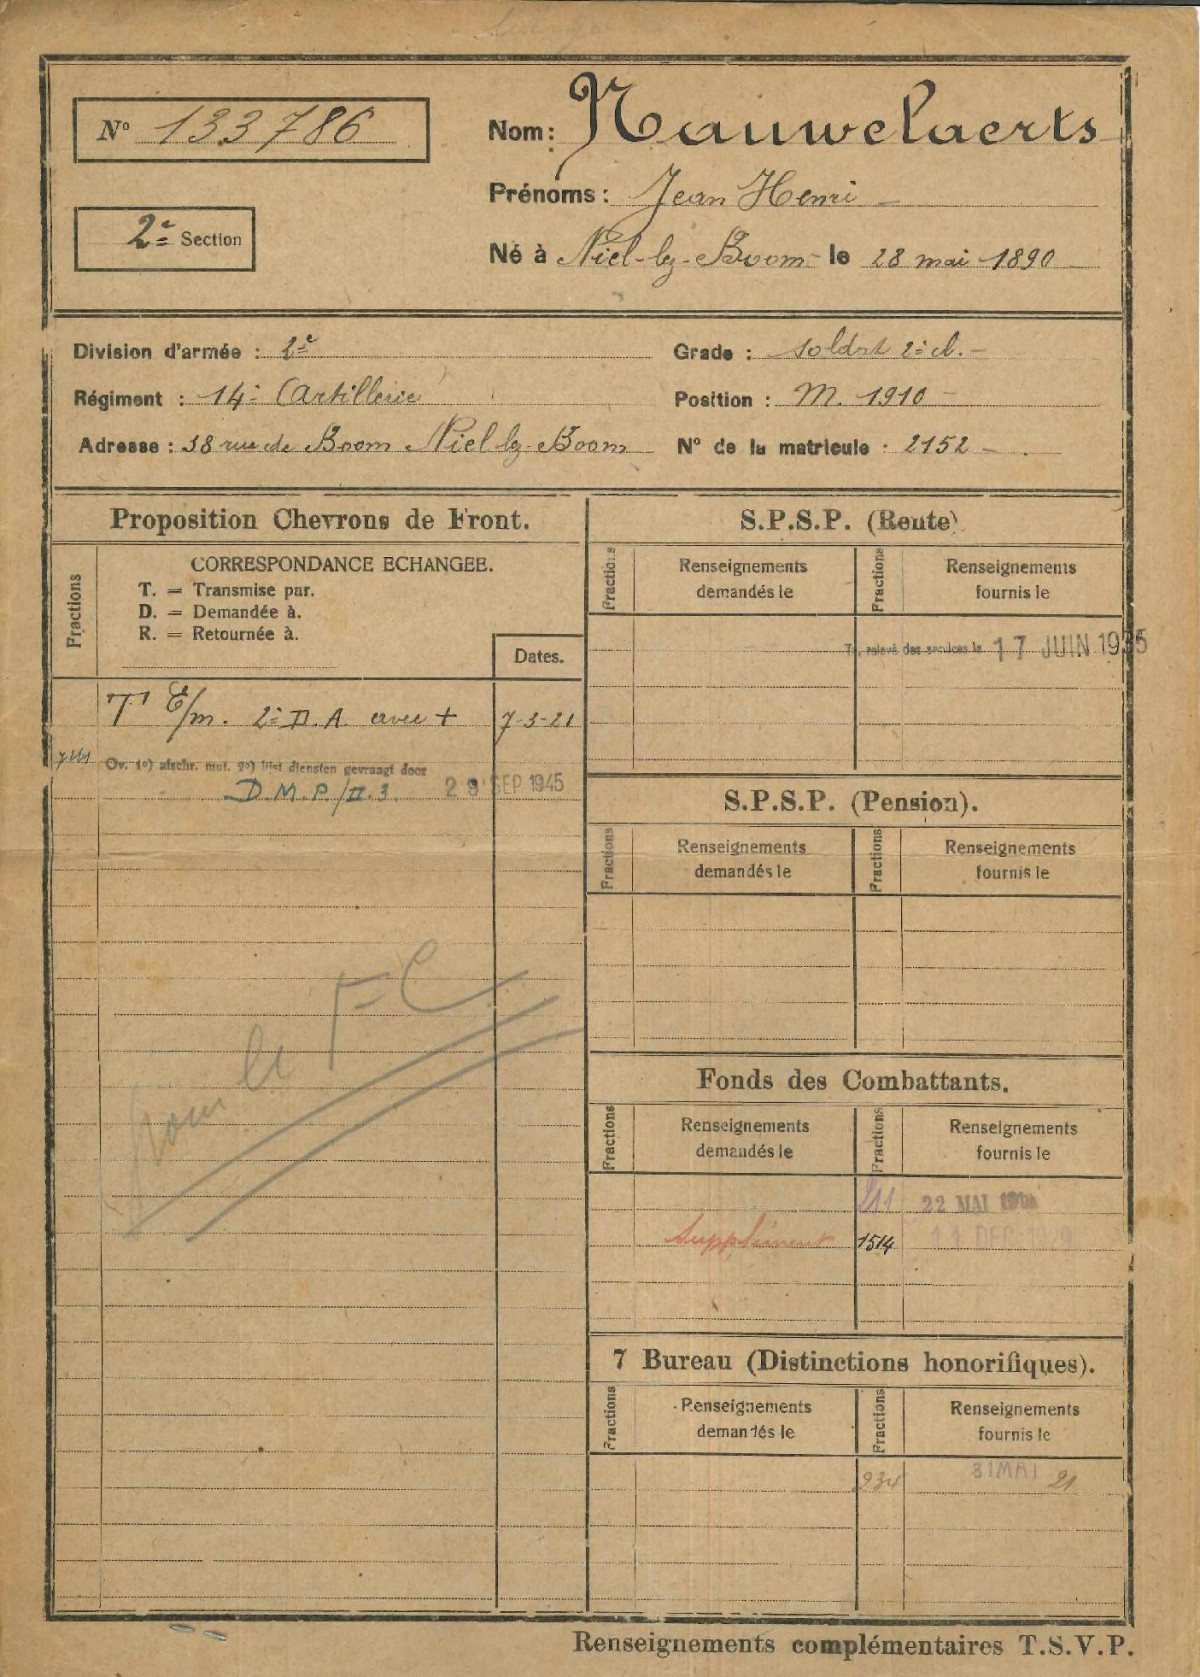 N° 133786
2e Section
Nom: Nauwelaerts
Prénoms: Jean Henri
Né à Niel-lez-Boom le 28 mai 1890
Division d'armée : 2e
Régiment : 14e Artillerie
Adresse : 38 rue de Boom Niel lez-Boom
Grade : soldat 2e cl.
Position : M. 1910
N° de la matricule : 2152
Proposition Chevrons de Front.
Fractions
CORRESPONDANCE ECHANGEE.
T. = Transmise par.
D. = Demandée à.
R. = Retournée à.
Dates.
T E/m. 2e D.A. avec + 7-3-21
Ov. 1°) afschr. mut. 2°) lijst diensten gevraagd door
D.M.P./II.3. 29 SEP 1945
pour le F C
S.P.S.P. (Rente)
Fractions
Renseignements
demandés le
Fractions
Renseignements
fournis le
relevé des services le 17 JUIN 1935
S.P.S.P. (Pension).
Fractions
Renseignements
demandés le
Fractions
Renseignements
fournis le
Fonds des Combattants.
Fractions
Renseignements
demandés le
Fractions
Renseignements
fournis le
211 22 MAI
Supplément 1514 11 DEC 1929
7 Bureau (Distinctions honorifiques).
Fractions
Renseignements
demandés le
Fractions
Renseignements
fournis le
234 31 MAI 21
Renseignements complémentaires T.S.V.P.